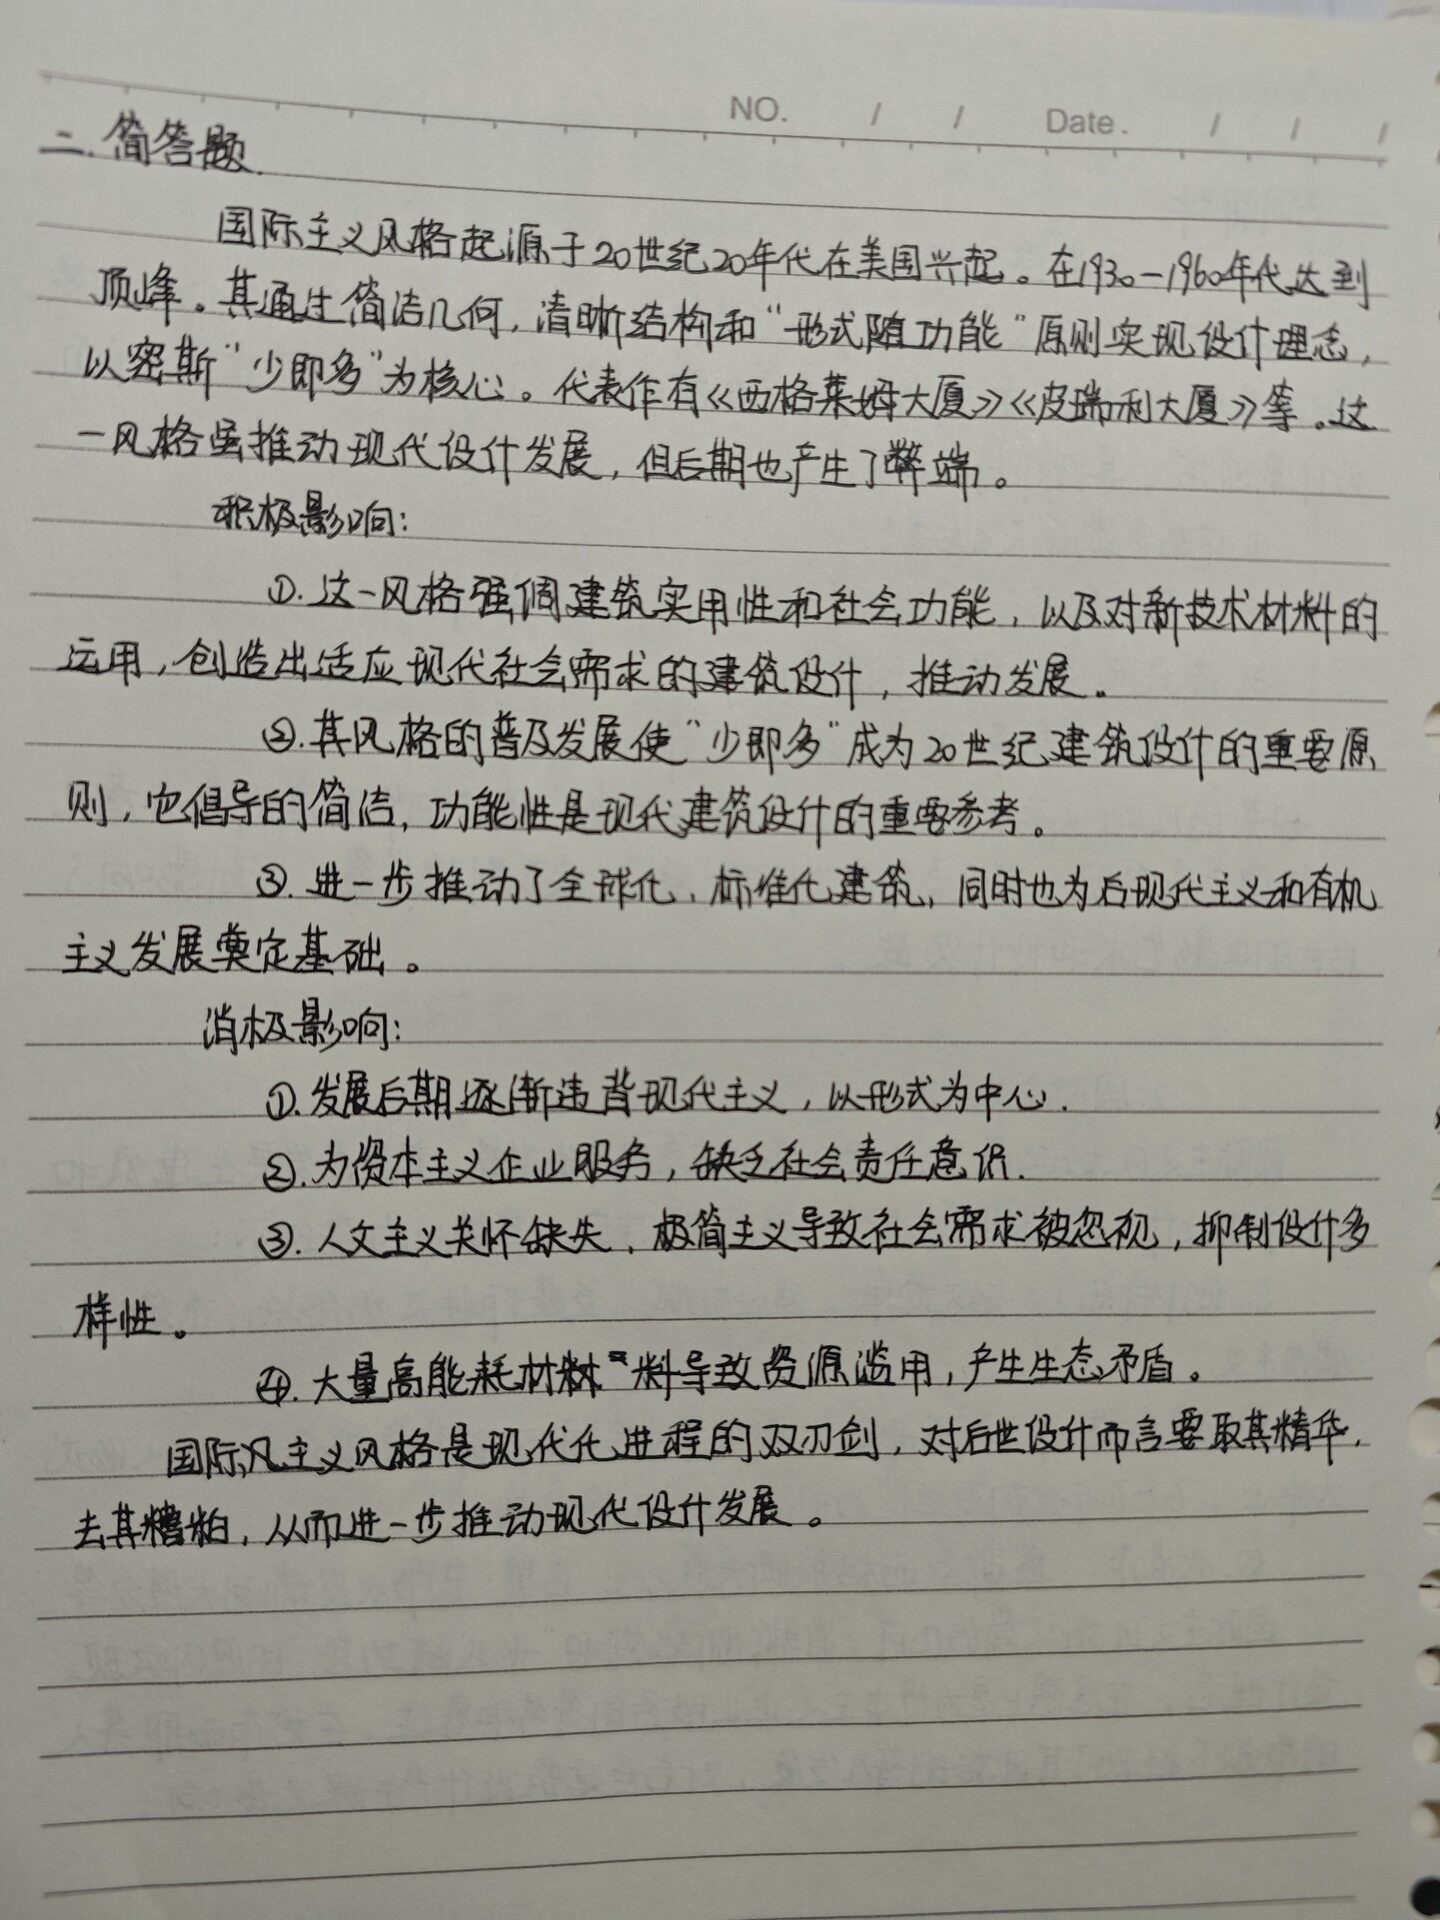 NO. / / Date. / / /
二.简答题.
国际主义风格起源于20世纪20年代在美国兴起。在1930-1960年代达到
顶峰。其通过简洁几何,清晰结构和“形式随功能”原则实现设计理念,
以密斯“少即多”为核心。代表作有《西格莱姆大厦》《皮瑞利大厦》等。这
一风格虽推动现代设计发展,但后期也产生了弊端。
积极影响:
①.这一风格强调建筑实用性和社会功能,以及对新技术材料的
运用,创造出适应现代社会需求的建筑设计,推动发展。
②.其风格的普及发展使“少即多”成为20世纪建筑设计的重要原
则,它倡导的简洁,功能性是现代建筑设计的重要参考。
③.进一步推动了全球化、标准化建筑,同时也为后现代主义和有机
主义发展奠定基础。
消极影响:
①.发展后期逐渐违背现代主义,以形式为中心.
②.为资本主义企业服务,缺乏社会责任意识.
③.人文主义关怀缺失、极简主义导致社会需求被忽视,抑制设计多
样性。
④.大量高能耗材料导致资源滥用,产生生态矛盾。
国际主义风格是现代化进程的双刃剑,对后世设计而言要取其精华,
去其糟粕,从而进一步推动现代设计发展。